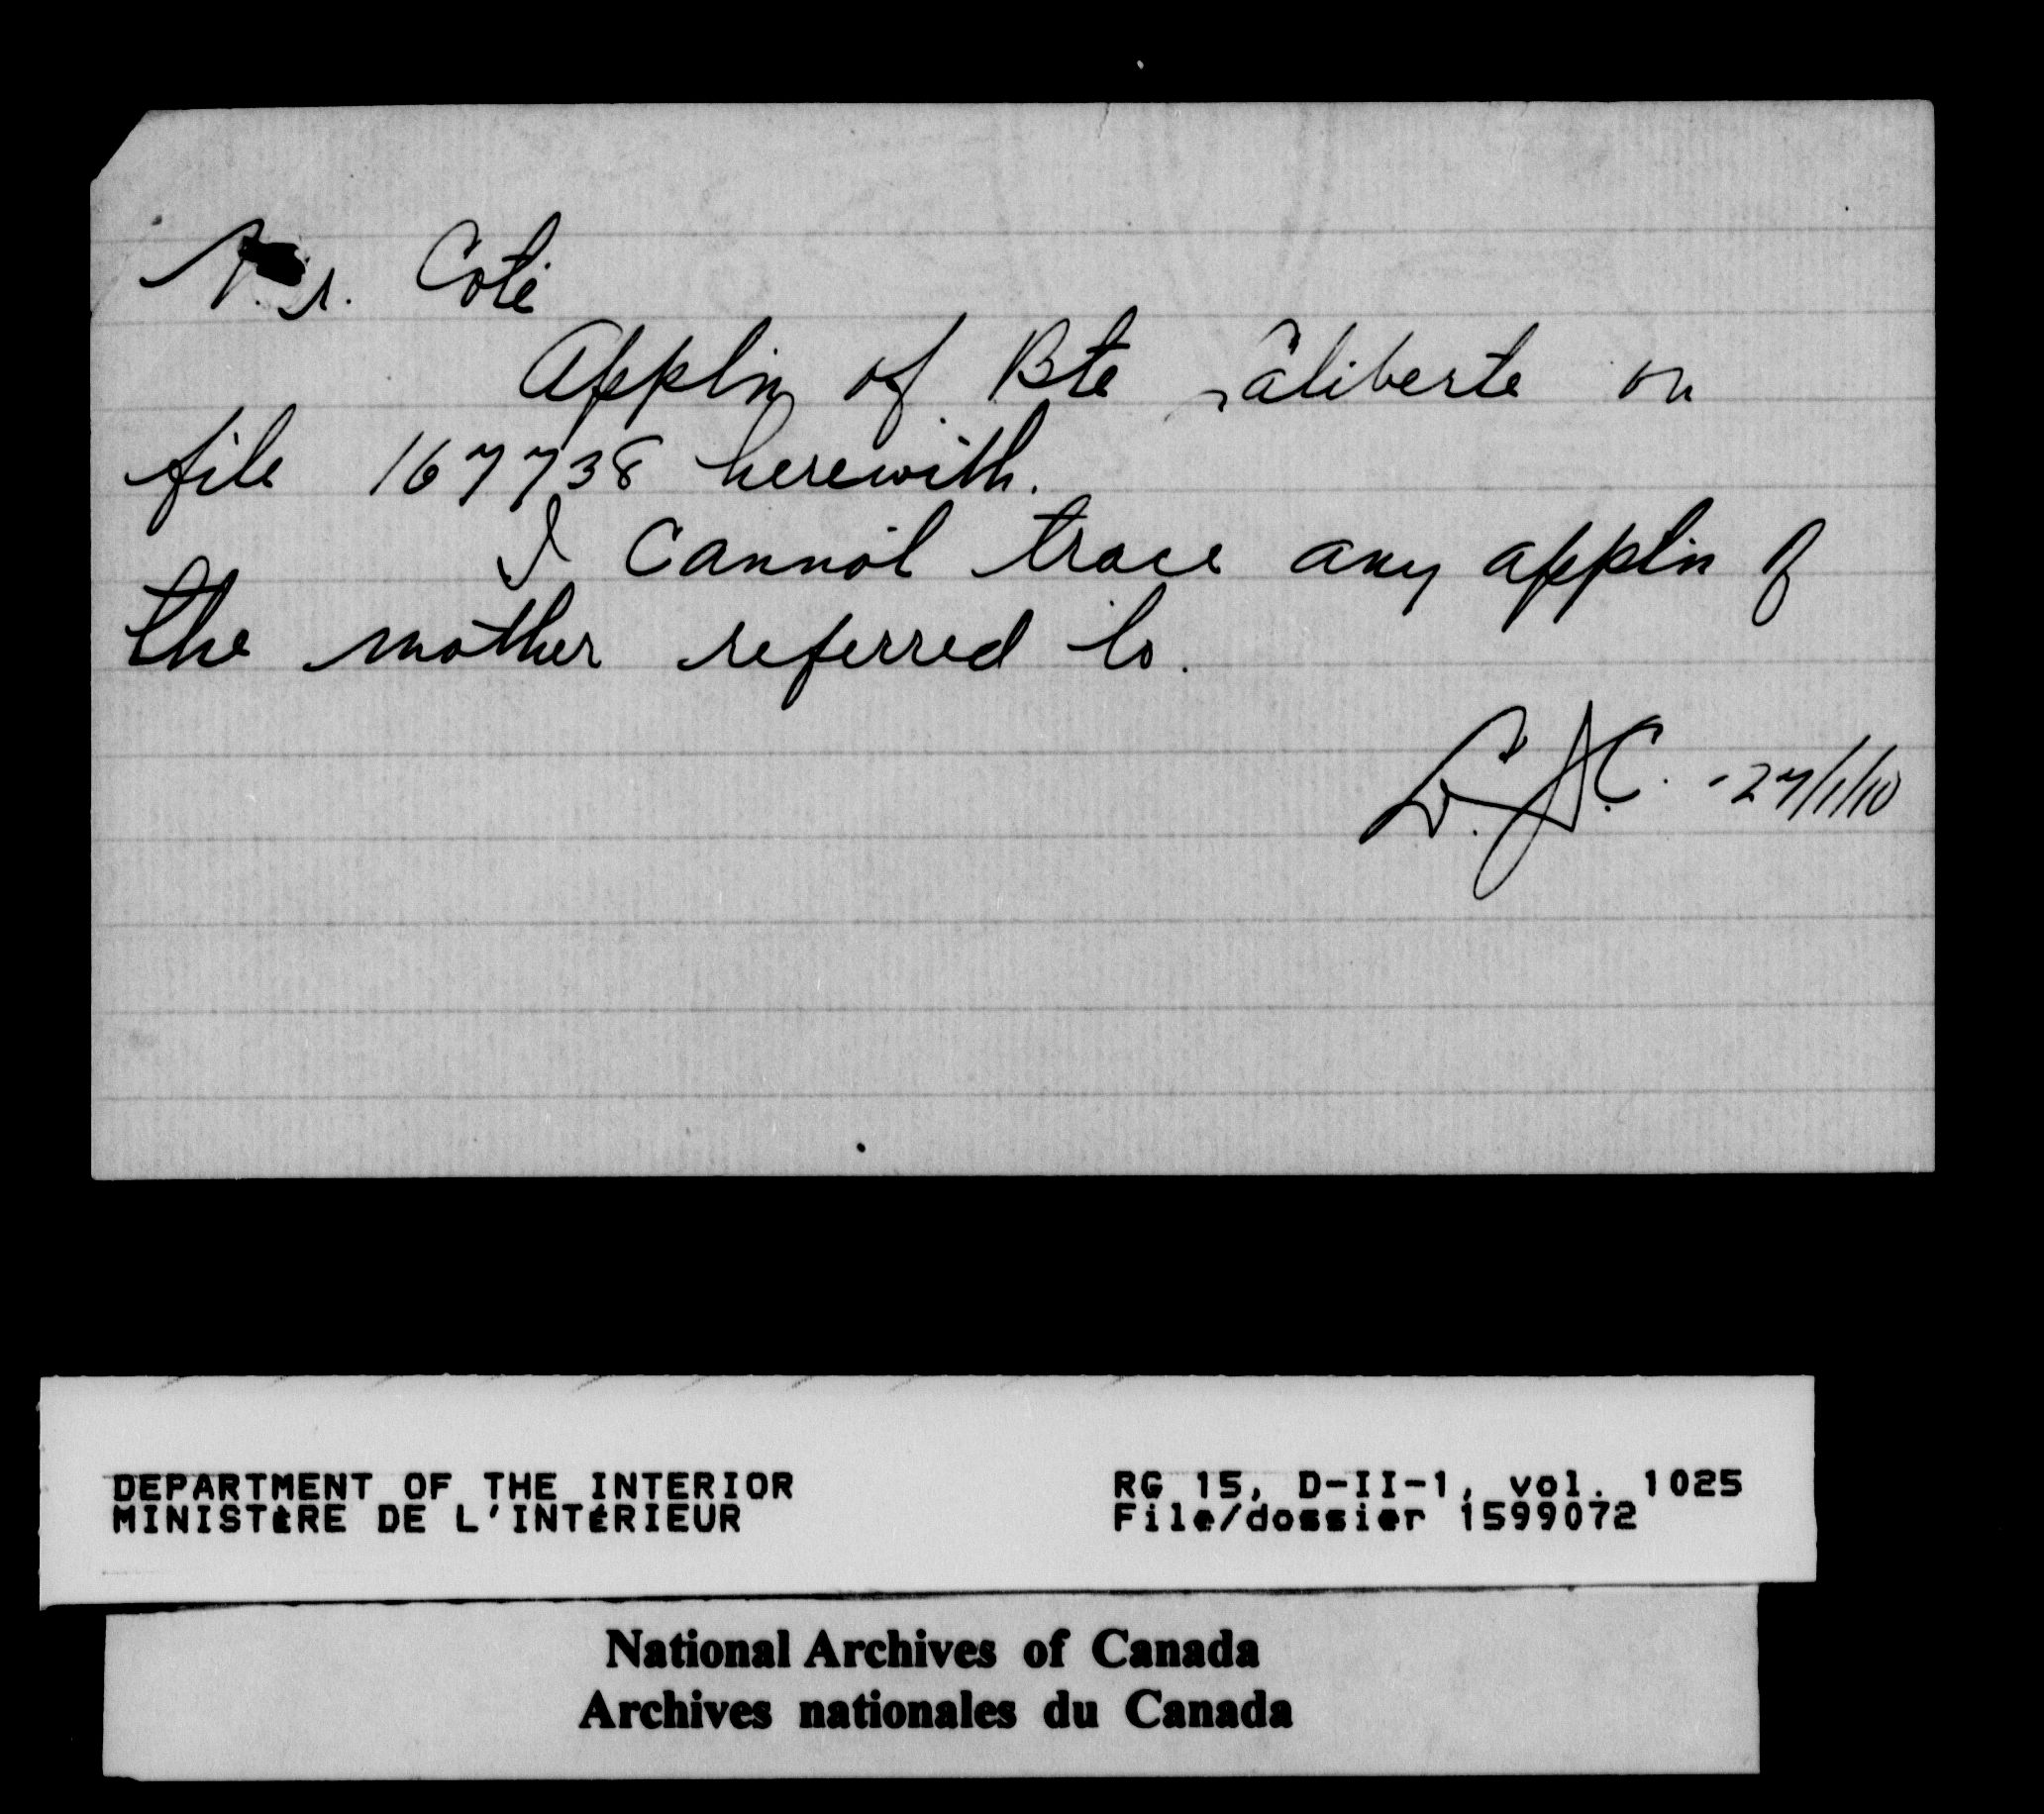 Mr. Coté
Appln of Bte Laliberte on
file 167738 herewith.
I cannot trace any appln of
the mother referred to.
L.J.C. - 27/1/10
DEPARTMENT OF THE INTERIOR
MINISTÈRE DE L'INTÉRIEUR
RG 15, D-II-1, vol. 1025
File/dossier 1599072
National Archives of Canada
Archives nationales du Canada